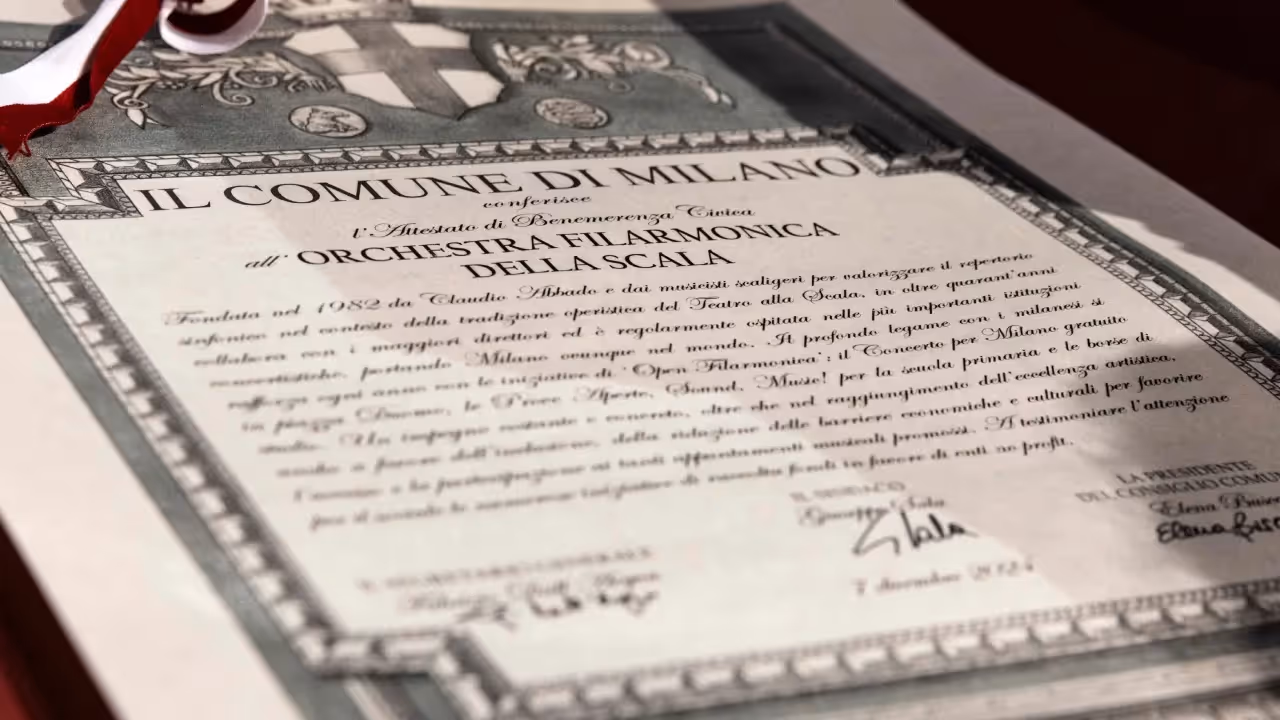 IL COMUNE DI MILANO
conferisce
l'Attestato di Benemerenza Civica
all' ORCHESTRA FILARMONICA
DELLA SCALA
Fondata nel 1982 da Claudio Abbado e dai musicisti scaligeri per valorizzare il repertorio
sinfonico nel contesto della tradizione operistica del Teatro alla Scala, in oltre quarant'anni
collabora con i maggiori direttori ed è regolarmente ospitata nelle più importanti istituzioni
concertistiche, portando Milano ovunque nel mondo. Il profondo legame con i milanesi si
rafforza ogni anno con le iniziative di 'Open Filarmonica': il Concerto per Milano gratuito
in piazza Duomo, le Prove Aperte, Sound, Music! per la scuola primaria e le borse di
studio. Un impegno costante e concreto, oltre che nel raggiungimento dell'eccellenza artistica,
anche a favore dell'inclusione, della riduzione delle barriere economiche e culturali per favorire
l'accesso e la partecipazione ai tanti appuntamenti musicali promossi. A testimoniare l'attenzione
per il sociale le numerose iniziative di raccolta fondi in favore di enti no profit.
IL SINDACO
Giuseppe Sala
LA PRESIDENTE
DEL CONSIGLIO COMU
Elena Busc
IL SEGRETARIO GENERALE
7 dicembre 2024